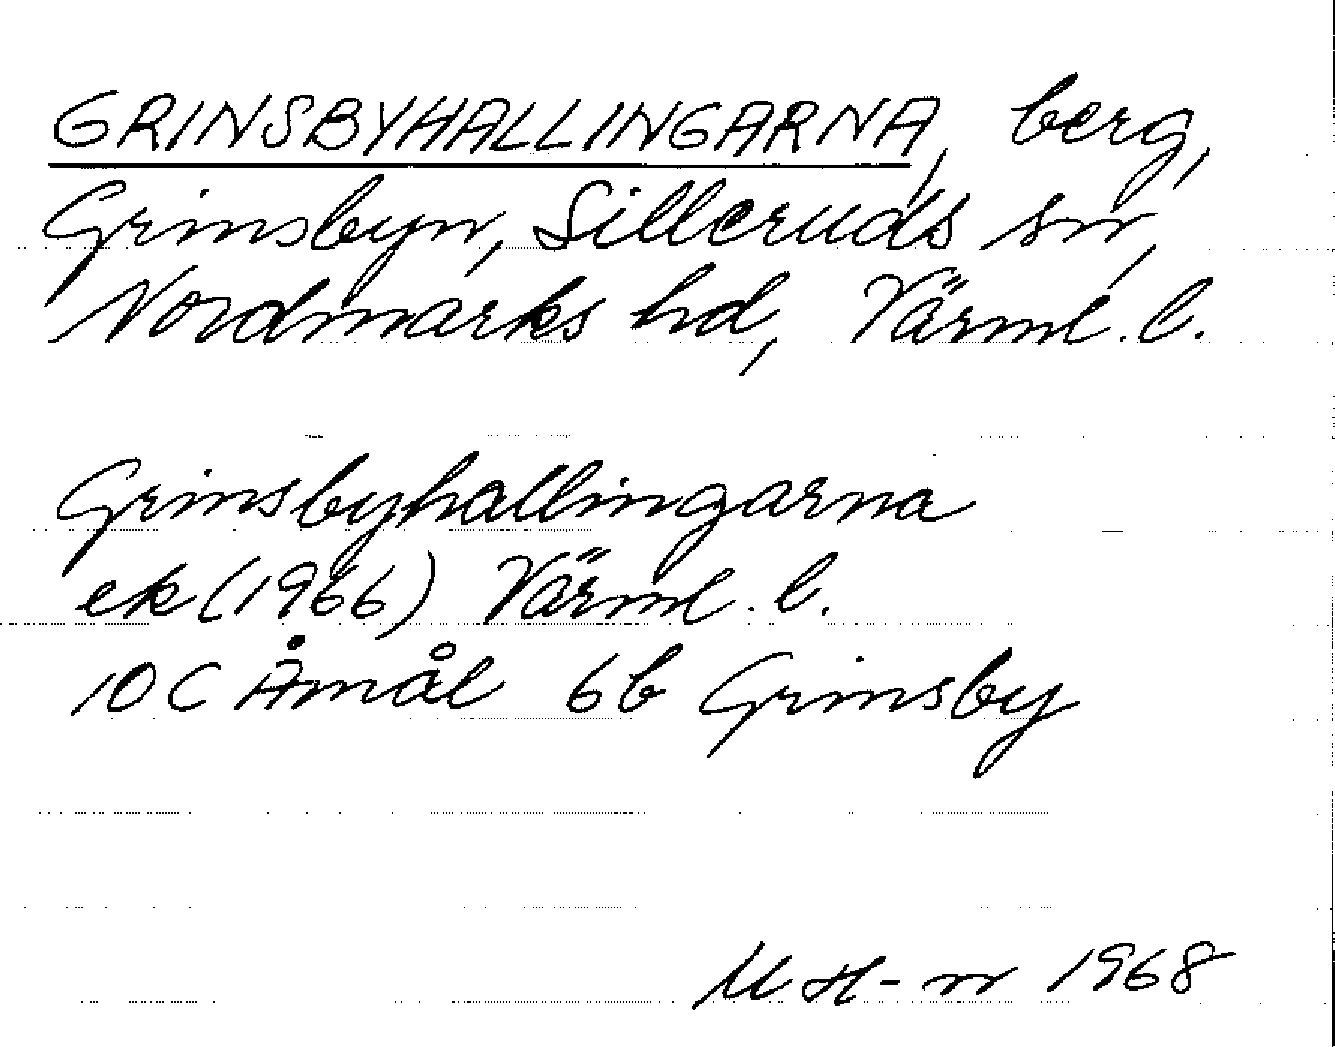 GRINSBYHALLINGARNA, berg,
Grinsbyn, Silleruds sn,
Nordmarks hd, Värml. l.
Grinsbyhallingarna
ek (1966) Värml. l.
10 C Åmål 6b Grinsby
M H-n 1968